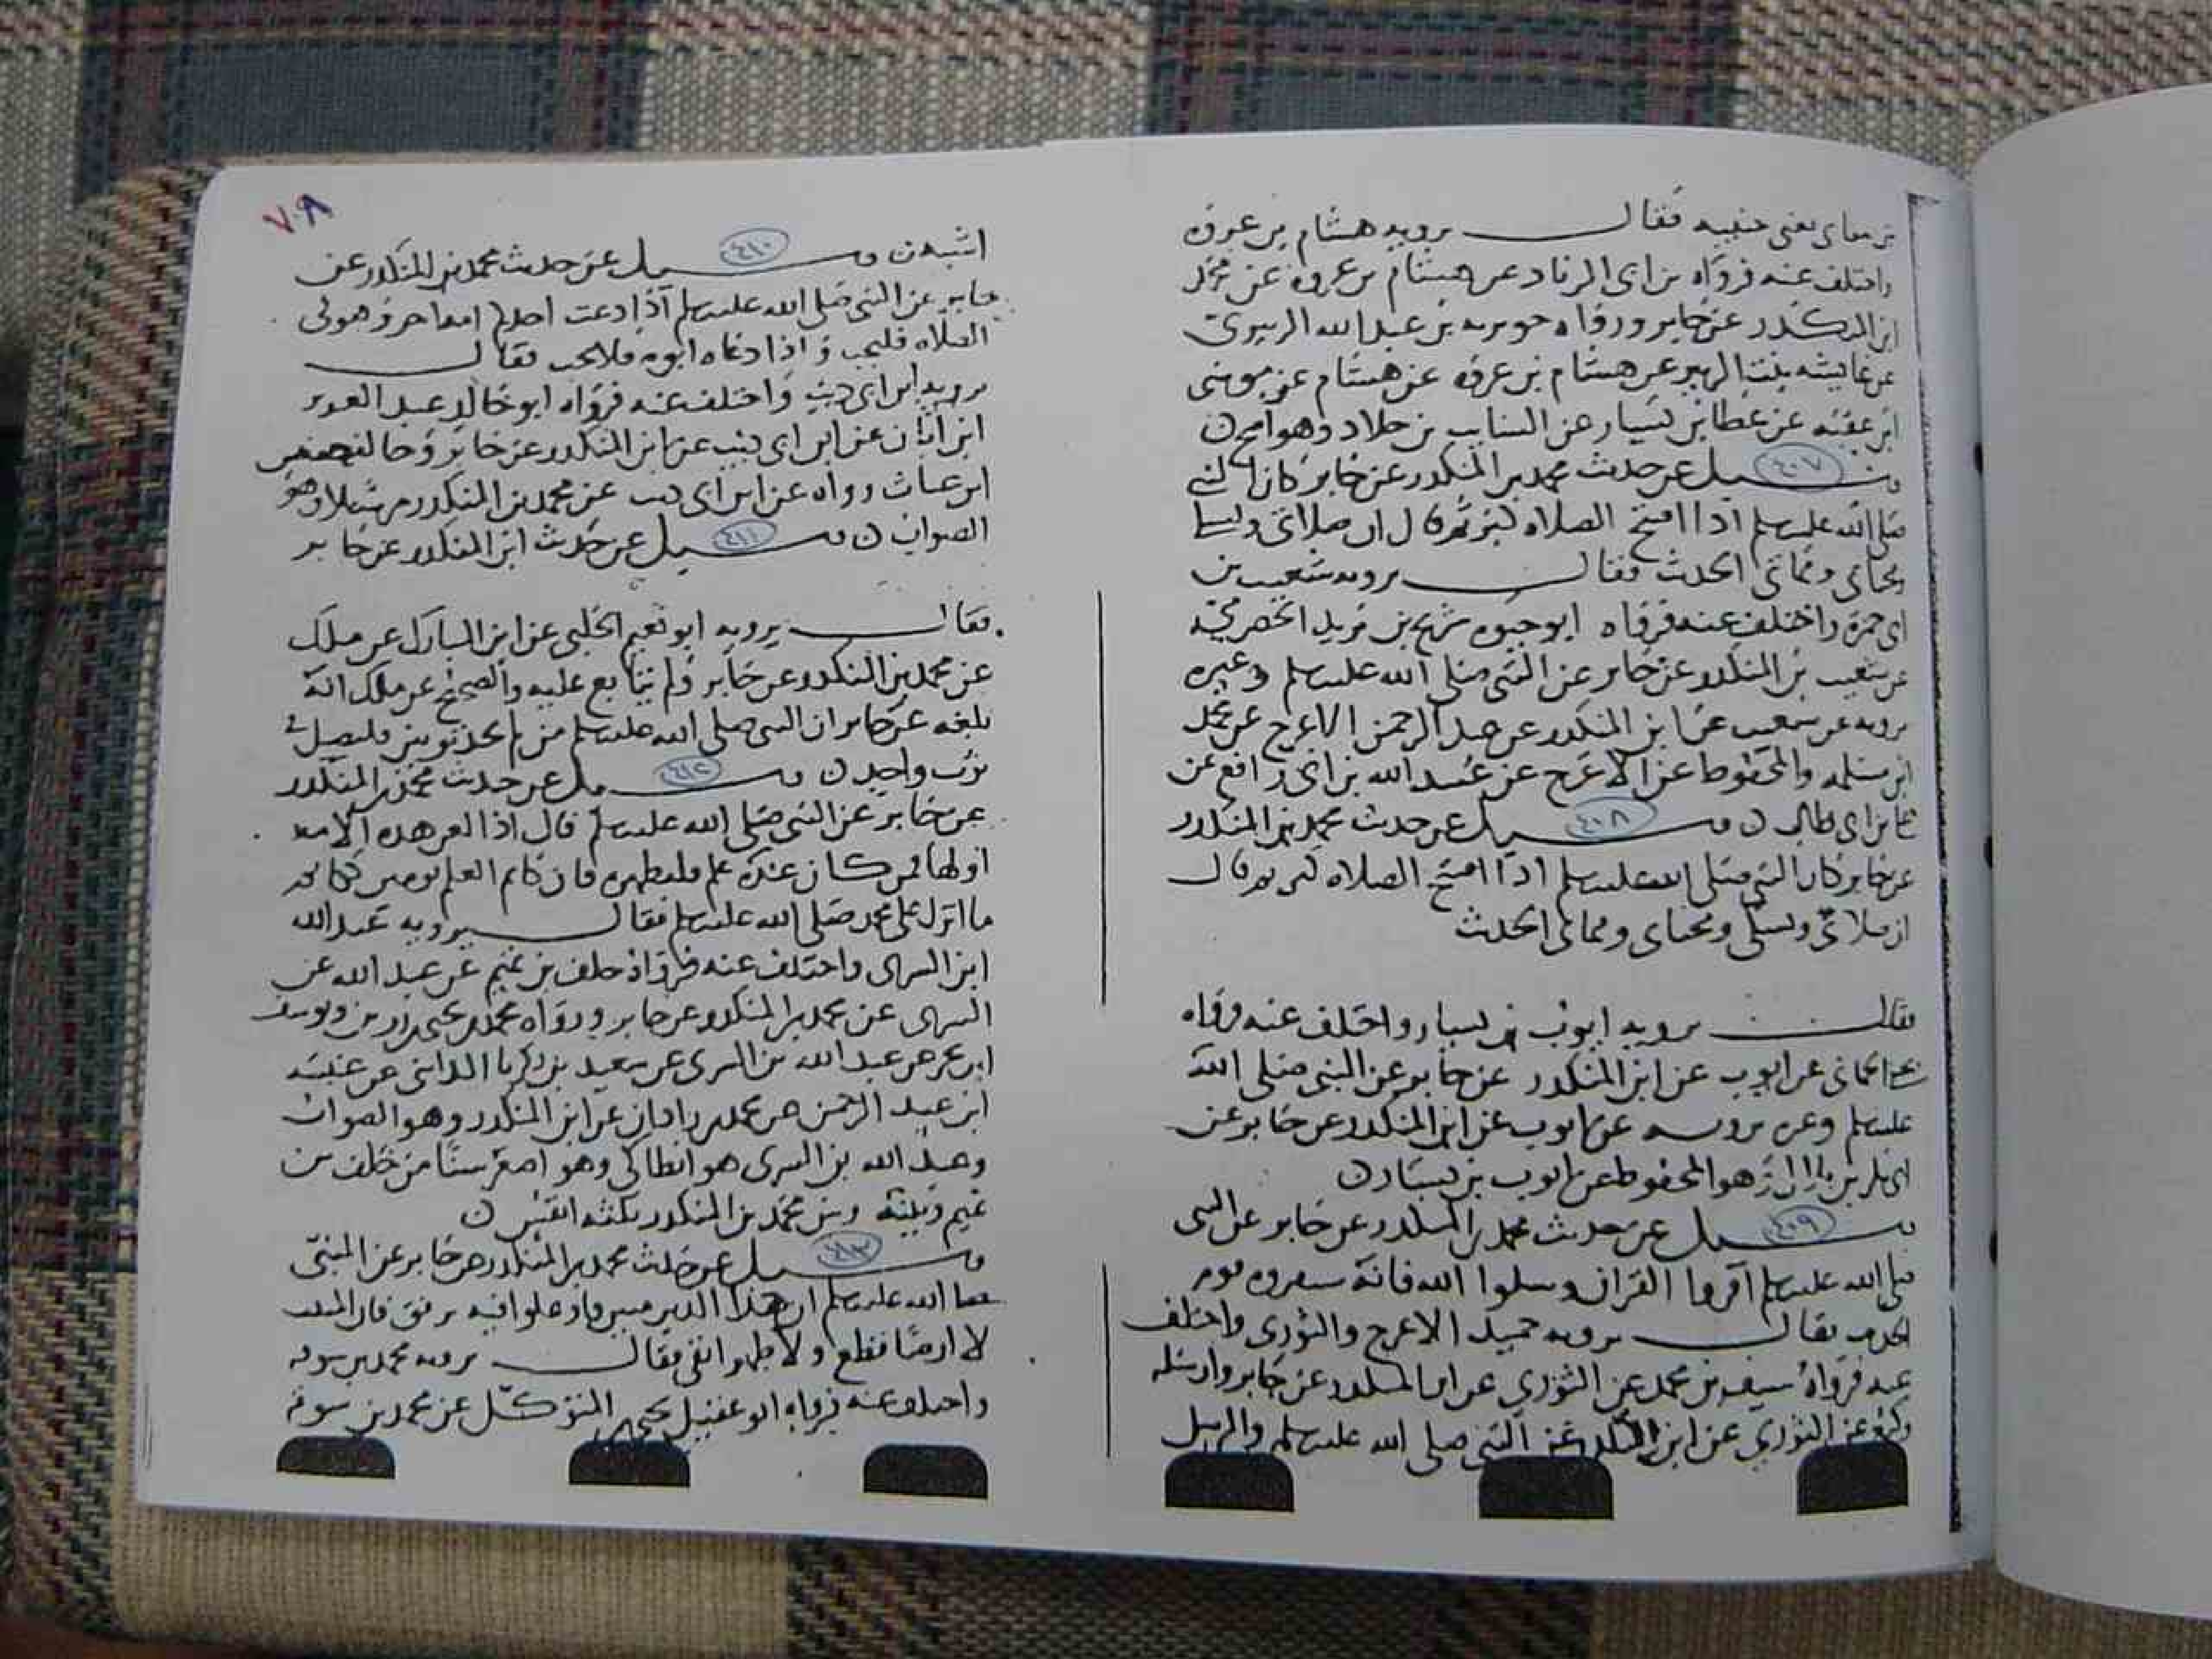 فقال يرويه هشام بن عروة
واختلف عنه فرواه بن ابى الزناد عن هشام بن عروه عن محمد
ابن المنكدر عن جابر ورواه حويريه بن عبد الله الزبيرى
عن عايشه بنت الزبير عن هشام بن عروه عن هشام عن موسى
ابن عقبه عن عطا بن يسار عن السايب بن خلاد وهو اصح ن
٤٠٧
وسيل عن حديث محمد بن المنكدر عن جابر كان النبي
صلى الله عليه وسلم اذا افتتح الصلاه كبر ثم قال ان صلاتى ونسكى
ومحياى ومماتى الحديث فقال يرويه شعيب بن
ابى حمزه واختلف عنه فرواه ابو حيوه شريح بن يزيد الحضرمى
عن شعيب بن المنكدر عن جابر عن النبى صلى الله عليه وسلم وغيره
يرويه عن شعيب عن ابن المنكدر عن عبد الرحمن الاعرج عن محمد
ابن مسلمه والمحفوظ عن الاعرج عن عبيد الله بن ابى رافع عن
على بن ابى طالب ن
٤٠٨
وسيل عن حديث محمد بن المنكدر
عن جابر كان النبى صلى الله عليه وسلم اذا افتتح الصلاه كبر ثم قال
ان صلاتى ونسكى ومحياى ومماتى الحديث
فقال يرويه ايوب بن يسار واختلف عنه فرواه
عن ايوب عن ابن المنكدر عن جابر عن النبى صلى الله
عليه وسلم وغيره يرويه عن ايوب عن ابن المنكدر عن جابر عن
ابى بكر عن بلال وهو المحفوظ عن ايوب بن يسار ن
٤٠٩
وسيل عن حديث محمد بن المنكدر عن جابر عن النبى
صلى الله عليه وسلم اقروا القران وسلوا الله فانه سيقروه قوم
الحديث فقال يرويه حميد الاعرج والثورى واختلف
عنه فرواه سيف بن محمد عن الثوري عن ابن المنكدر عن جابر وارسله
وكيع عن الثوري عن ابن المنكدر عن النبي صلى الله عليه وسلم والمرسل
٧٠٨
اشبه ن
٤١٠
وسيل عن حديث محمد بن المنكدر عن
جابر عن النبى صلى الله عليه وسلم اذا دعت احدكم امه وهو فى
الصلاه فليجب واذا دعاه ابوه فلا يجب فقال
يرويه ابن ابى ذيب واختلف عنه فرواه ابو خالد عبد العزيز
ابن ابان عن ابن ابى ذيب عن ابن المنكدر عن جابر وخالفه حفص
ابن غياث رواه عن ابن ابى ذيب عن محمد بن المنكدر مرسلا وهو
الصواب ن
٤١١
وسيل عن حديث ابن المنكدر عن جابر
فقال يرويه ابو نعيم الحلبى عن ابن المبارك عن ملك
عن محمد بن المنكدر عن جابر ولم يتابع عليه والصحيح عن ملك انه
بلغه عن جابر ان النبى صلى الله عليه وسلم من لم يجد ثوبين فليصل فى
ثوب واحد ن
٤١٢
وسيل عن حديث محمد بن المنكدر
عن جابر عن النبى صلى الله عليه وسلم قال اذا لعن هذه الامه
اولها فمن كان عنده علم فليظهره فان كاتم العلم يوميذ ككاتم
ما انزل على محمد صلى الله عليه وسلم فقال يرويه عبد الله
ابن السرى واختلف عنه فرواه خلف بن تميم عن عبد الله بن
السرى عن محمد بن المنكدر عن جابر ورواه محمد
عن عبد الله بن السرى عن سعيد بن زكريا المداينى عن عنبسه
ابن عبد الرحمن عن محمد بن زاذان عن ابن المنكدر وهو الصواب
وعبد الله بن السرى هو انطاكى وهو اصغر سنا من خلف بن
تميم وبينه وبين محمد بن المنكدر ثلثه انفس ن
٤١٣
وسيل عن حديث محمد بن المنكدر عن جابر عن النبى
صلى الله عليه وسلم ان هذا الدين متين فاوغلوا فيه برفق فان المنبت
لا ارضا قطع ولا ظهرا ابقى فقال يرويه محمد بن سوقه
واختلف عنه فرواه ابو عقيل يحيى بن المتوكل عن محمد بن سوقه